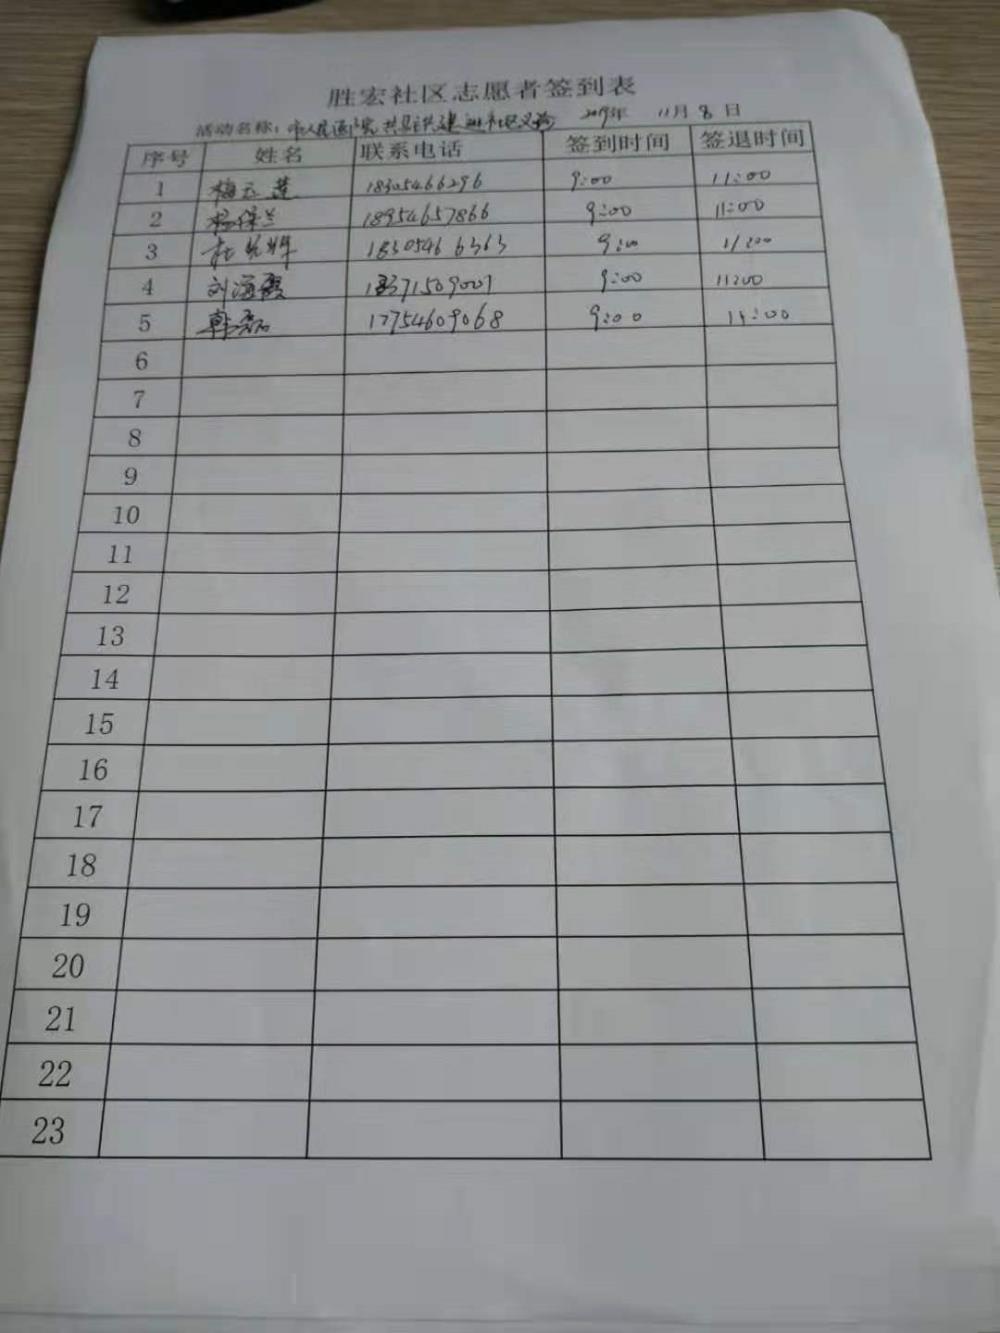 胜宏社区志愿者签到表
活动名称：市人民医院 共 建 社区义诊 2019年 11月 8 日
序号 姓名 联系电话 签到时间 签退时间
1 梅云莲 18305466296 9:00 11:00
2 杨保兰 18954657866 9:00 11:00
3 杜 18305466363 9:00 11:00
4 刘海霞 13371509007 9:00 11:00
5 韩磊 17754609068 9:00 11:00
6
7
8
9
10
11
12
13
14
15
16
17
18
19
20
21
22
23